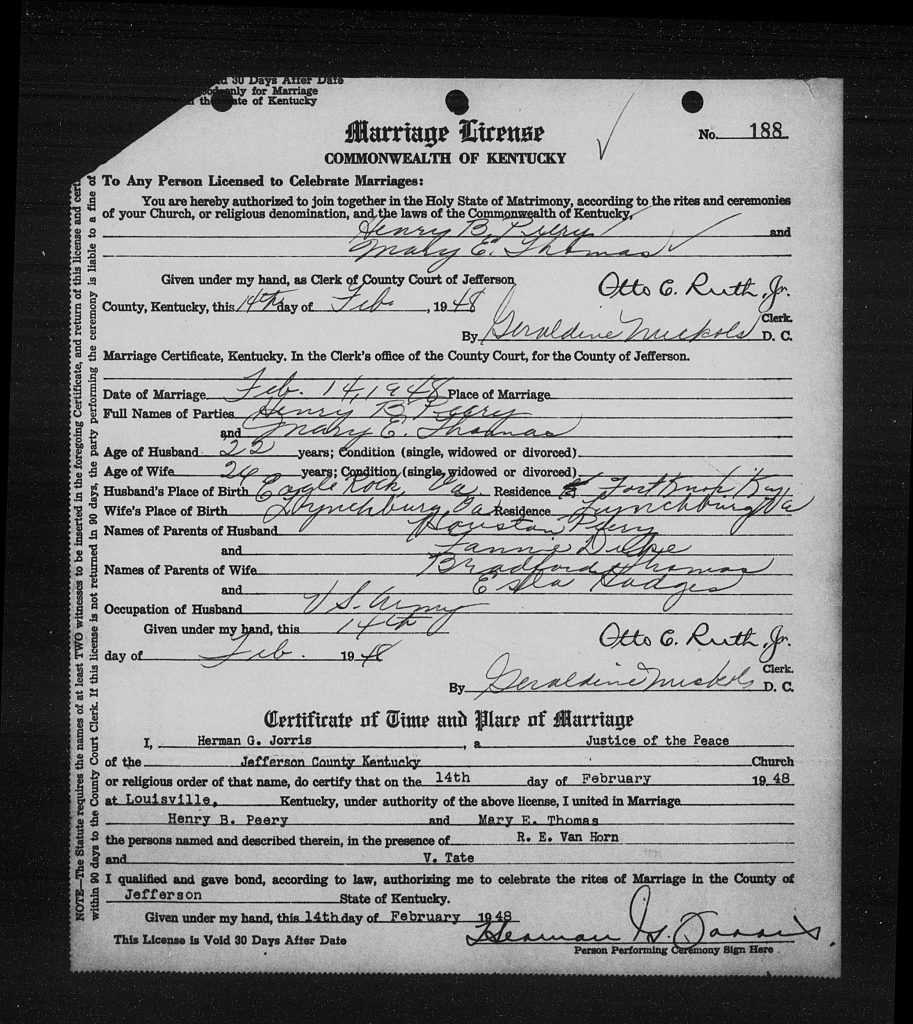 30 Days After Date
only for Marriage
ate of Kentucky
Marriage License
No. 188
COMMONWEALTH OF KENTUCKY
To Any Person Licensed to Celebrate Marriages:
You are hereby authorized to join together in the Holy State of Matrimony, according to the rites and ceremonies
of your Church, or religious denomination, and the laws of the Commonwealth of Kentucky,
Henry B. Peery and
Mary E. Thomas
Given under my hand, as Clerk of County Court of Jefferson Otto C. Ruth, Jr.
County, Kentucky, this 14th day of Feb. , 1948
Clerk.
By Geraldine Nuckols D. C.
Marriage Certificate, Kentucky. In the Clerk's office of the County Court, for the County of Jefferson.
Date of Marriage Feb. 14, 1948 Place of Marriage
Full Names of Parties Henry B Peery
and Mary E. Thomas
Age of Husband 22 years; Condition (single, widowed or divorced)
Age of Wife 26 years; Condition (single, widowed or divorced)
Husband's Place of Birth Eagle Rock, Va. Residence Fort Knox Ky
Wife's Place of Birth Lynchburg, Va Residence Lynchburg Va
Names of Parents of Husband Houston Peery
and Fannie
Names of Parents of Wife Bradford Thomas
and Hodges
Occupation of Husband U S. Army
Given under my hand, this 14th Otto C. Ruth, Jr.
day of Feb. 1948
Clerk.
By Geraldine Nuckols D. C.
Certificate of Time and Place of Marriage
I, Herman G. Jorris , a Justice of the Peace
of the Jefferson County Kentucky Church
or religious order of that name, do certify that on the 14th day of February 1948
at Louisville, Kentucky, under authority of the above license, I united in Marriage
Henry B. Peery and Mary E. Thomas
the persons named and described therein, in the presence of R. E. Van Horn
and V. Tate
I qualified and gave bond, according to law, authorizing me to celebrate the rites of Marriage in the County of
Jefferson State of Kentucky.
Given under my hand, this 14th day of February 1948
This License is Void 30 Days After Date Herman G. Jorris
Person Performing Ceremony Sign Here
NOTE—The Statute requires the names of at least TWO witnesses to be inserted in the foregoing Certificate, and return of this license and cert
within 90 days to the County Court Clerk. If this license is not returned in 90 days, the party performing the ceremony is liable to a fine of